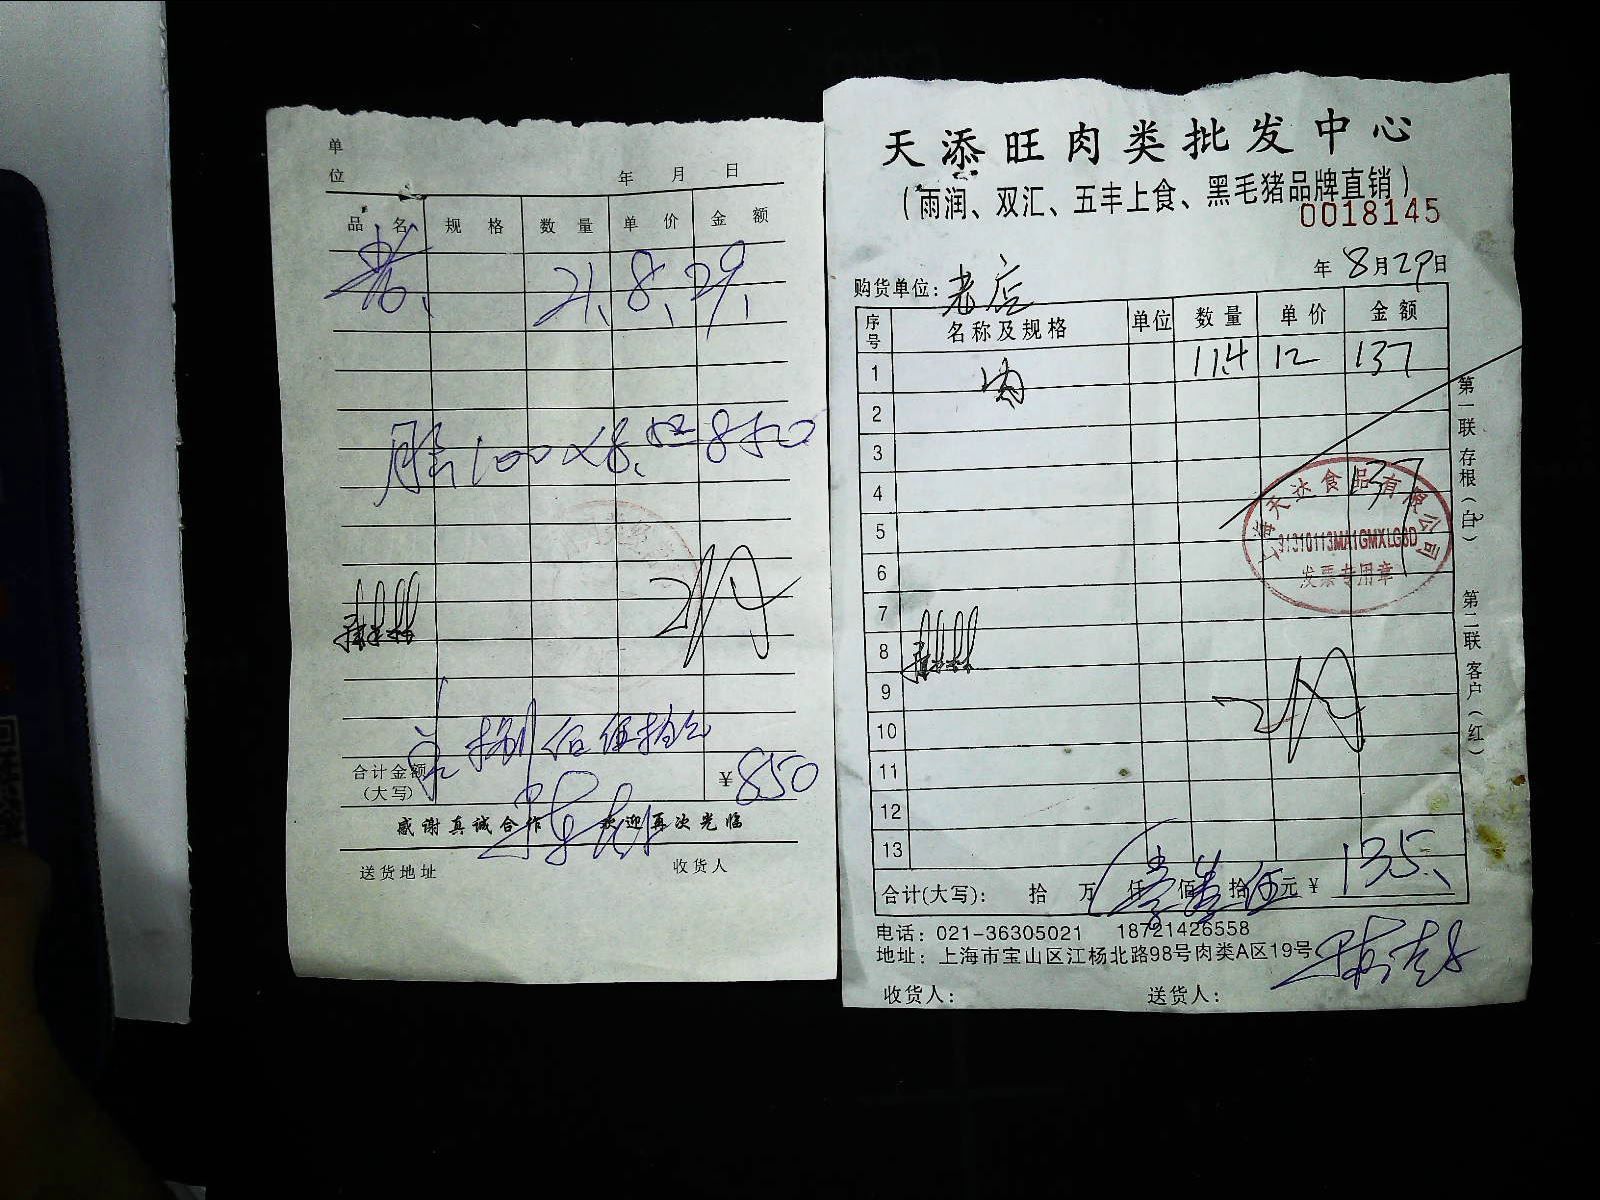 单位
年 月 日
品名 规格 数量 单价 金额
老 21、8、29、
100×8.5=850
捌佰伍拾元
合计金额(大写) ¥850
感谢真诚合作 欢迎再次光临
送货地址 收货人
天添旺肉类批发中心
(雨润、双汇、五丰上食、黑毛猪品牌直销)
0018145
年8月29日
购货单位:老店
序号 名称及规格 单位 数量 单价 金额
1 肉 11.4 12 137
2
3
4 137
5
6
7
8
9
10
11
12
13
上海天达食品有限公司
91310113MA1GMXLG8D
发票专用章
第一联 存根(白) 第二联 客户(红)
合计(大写): 拾 万 仟 壹佰叁拾伍元 ¥135、
电话:021-36305021 18721426558
地址:上海市宝山区江杨北路98号肉类A区19号
收货人: 送货人: